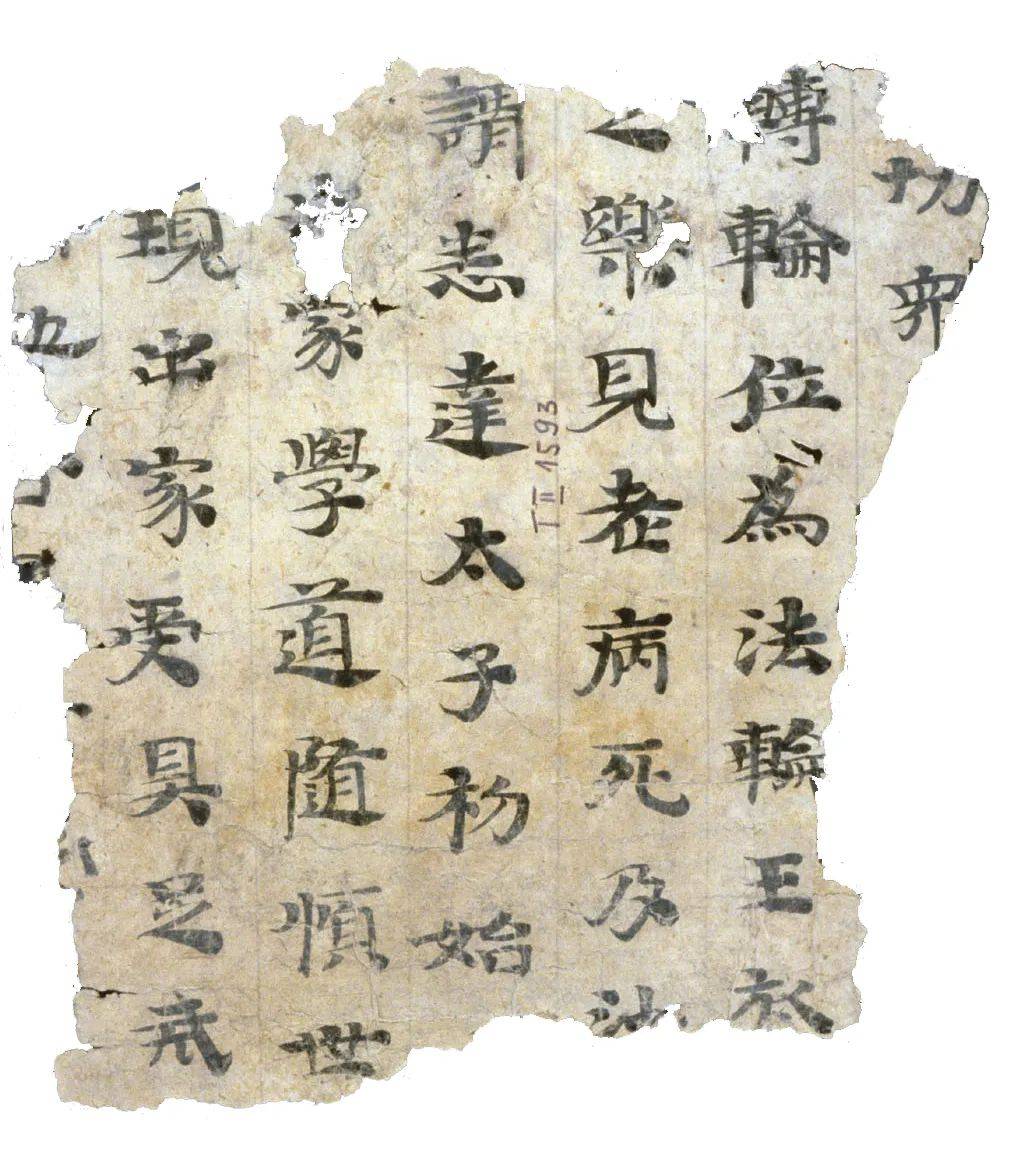 切眾
轉輪位為法輪王於
之樂見老病死及沙
謂悉達太子初始
家學道隨順世
現出家受具足戒
T II 1593